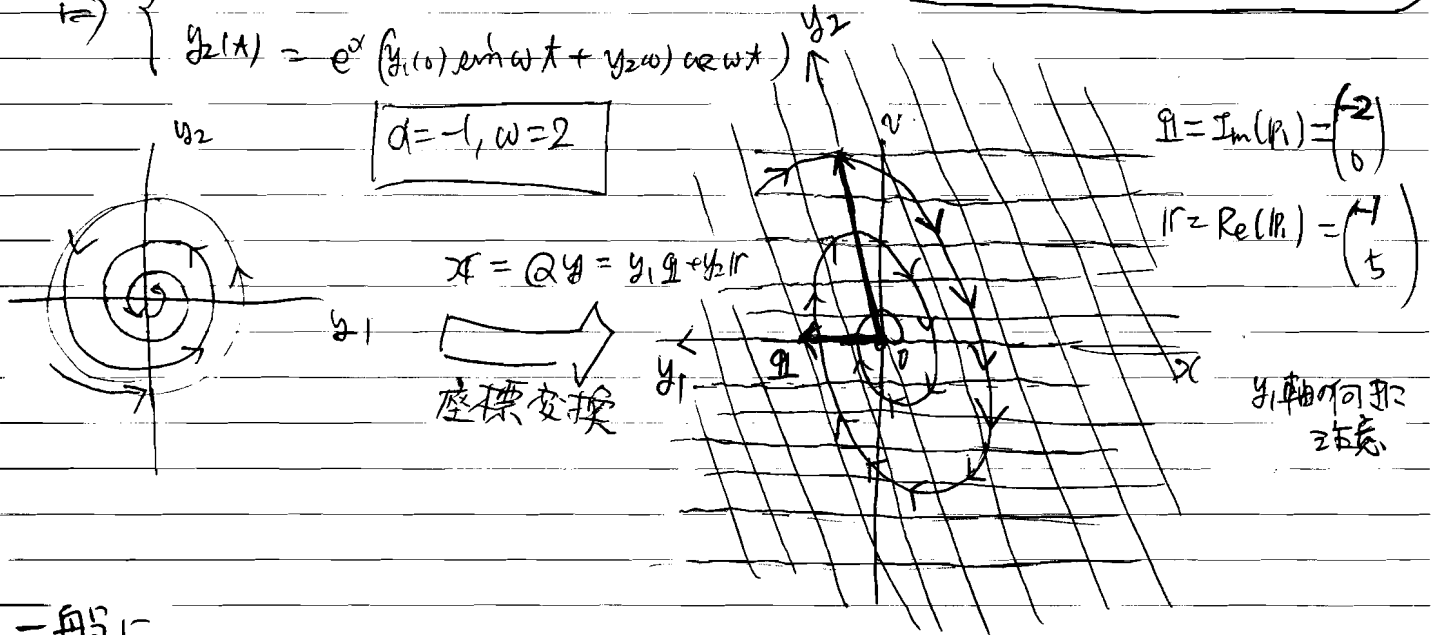 ⇔) {
y₂(t) = e^α (y₁(0) sin ωt + y₂(0) cos ωt)
y₂
α = -1, ω = 2
y₂
v
q = Im(p₁) = (-2 0)
r = Re(p₁) = (-1 5)
x = Qy = y₁q + y₂r
y₁
座標変換
y₁
q
0
x
y₁軸の向きに
注意
一般に